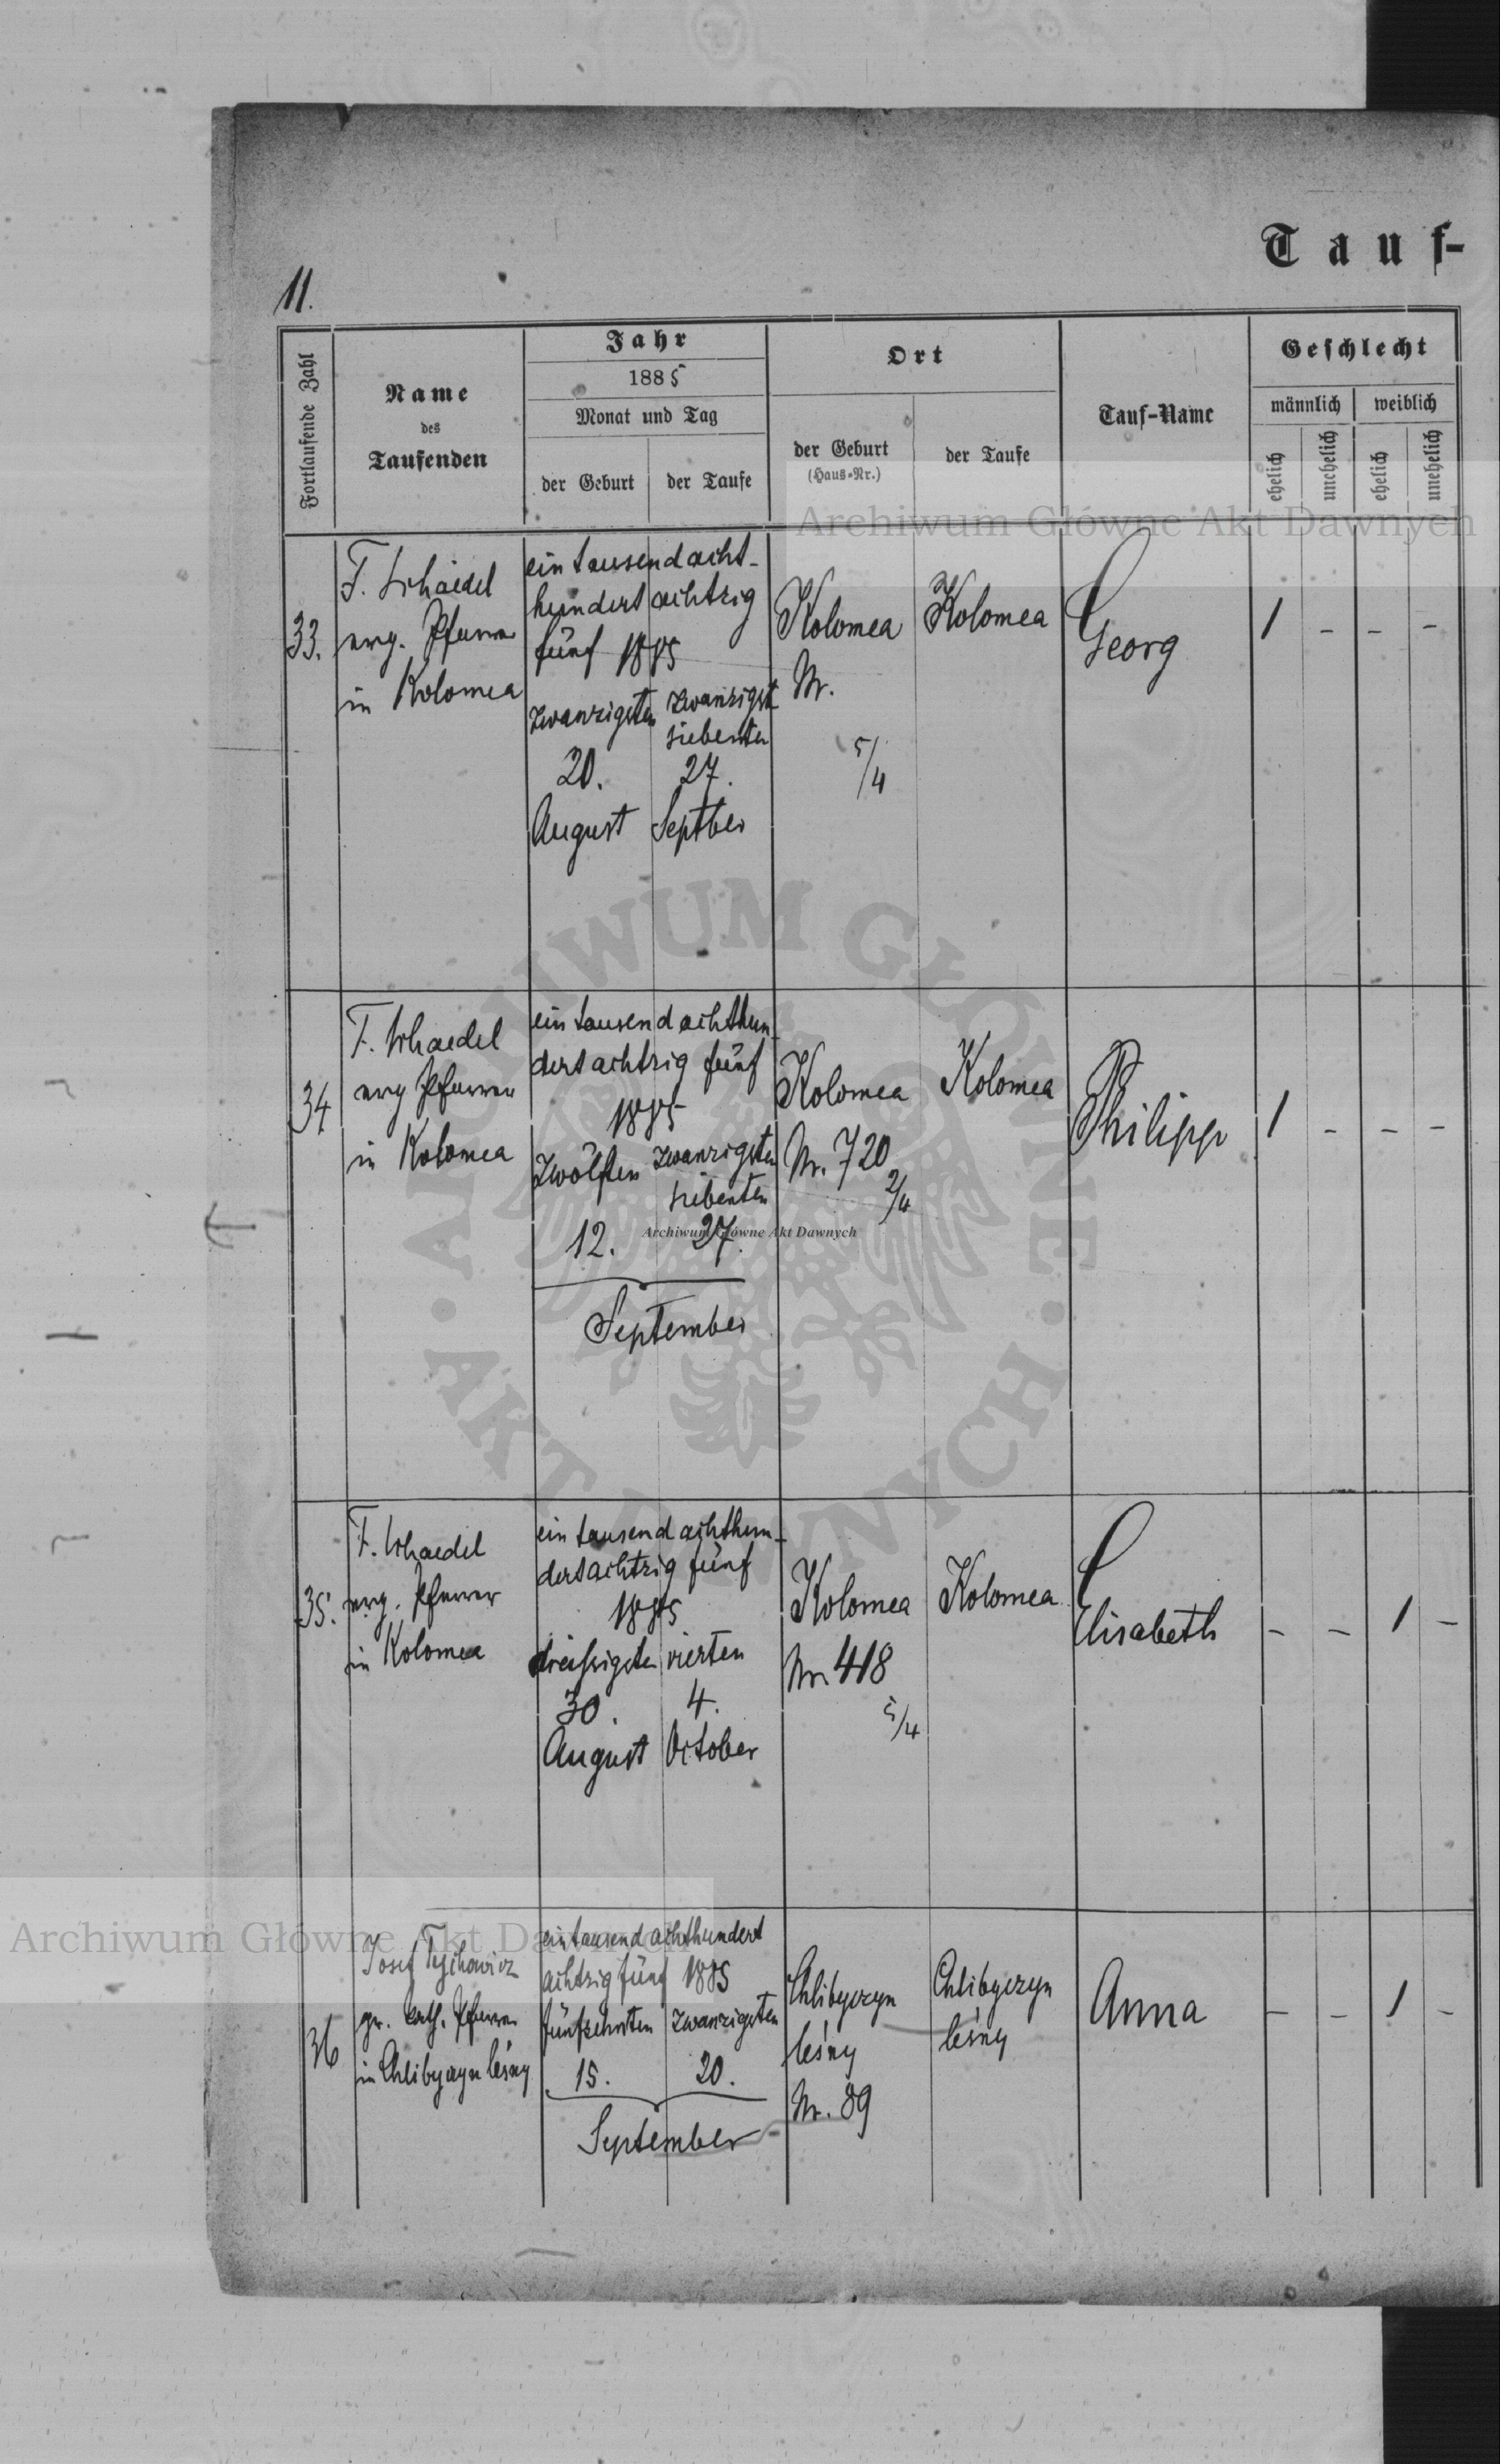 Tauf-
11.
Fortlaufende Zahl
Name
des
Taufenden
Jahr
1885
Monat und Tag
der Geburt
der Taufe
Ort
der Geburt
(Haus-Nr.)
der Taufe
Tauf-Name
Geschlecht
männlich
weiblich
ehelich
unehelich
ehelich
unehelich
Archiwum Główne Akt Dawnych
33.
F. Schaedel
evg. Pfarrer
in Kolomea
ein tausend acht-
hundert achtzig
fünf 1885
zwanzigsten
20.
August
zwanzigst
siebenten
27.
Septber
Kolomea
Nr.
5/4
Kolomea
Georg
1 - - -
34
F. Schaedel
evg Pfarrer
in Kolomea
ein tausend achthun-
dert achtzig fünf
1885
zwölften
12.
zwanzigsten
siebenten
27.
September
Kolomea
Nr. 720
2/4
Kolomea
Philipp
1 - - -
ARCHIWUM GŁÓWNE · AKT DAWNYCH ·
Archiwum Główne Akt Dawnych
35.
F. Schaedel
evg. Pfarrer
in Kolomea
ein tausend achthun-
dert achtzig fünf
1885
dreissigsten
30.
August
vierten
4.
October
Kolomea
Nr. 418
5/4
Kolomea
Elisabeth
- - 1 -
Archiwum Główne Akt Dawnych
36
Josef
gr. kath. Pfarrer
in Chlibyczyn leśny
ein tausend achthundert
achtzig fünf 1885
fünfzehnten
15.
zwanzigsten
20.
September
Chlibyczyn
leśny
Nr. 89
Chlibyczyn
leśny
Anna
- - 1 -